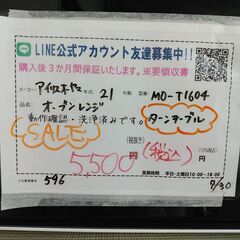 LINE公式アカウント友達募集中!!
購入後3か月間保証いたします。※要領収書
メーカー アイリスオーヤマ 年式: 21 年製 型: MO-T1604
品名: オーブンレンジ
ターンテーブル
SALE
動作確認・洗浄済みです。
(税抜き)
5,500円 (税込)
(10%税込)
円
596
営業時間 平日・土曜日10:00~18:00
9/30